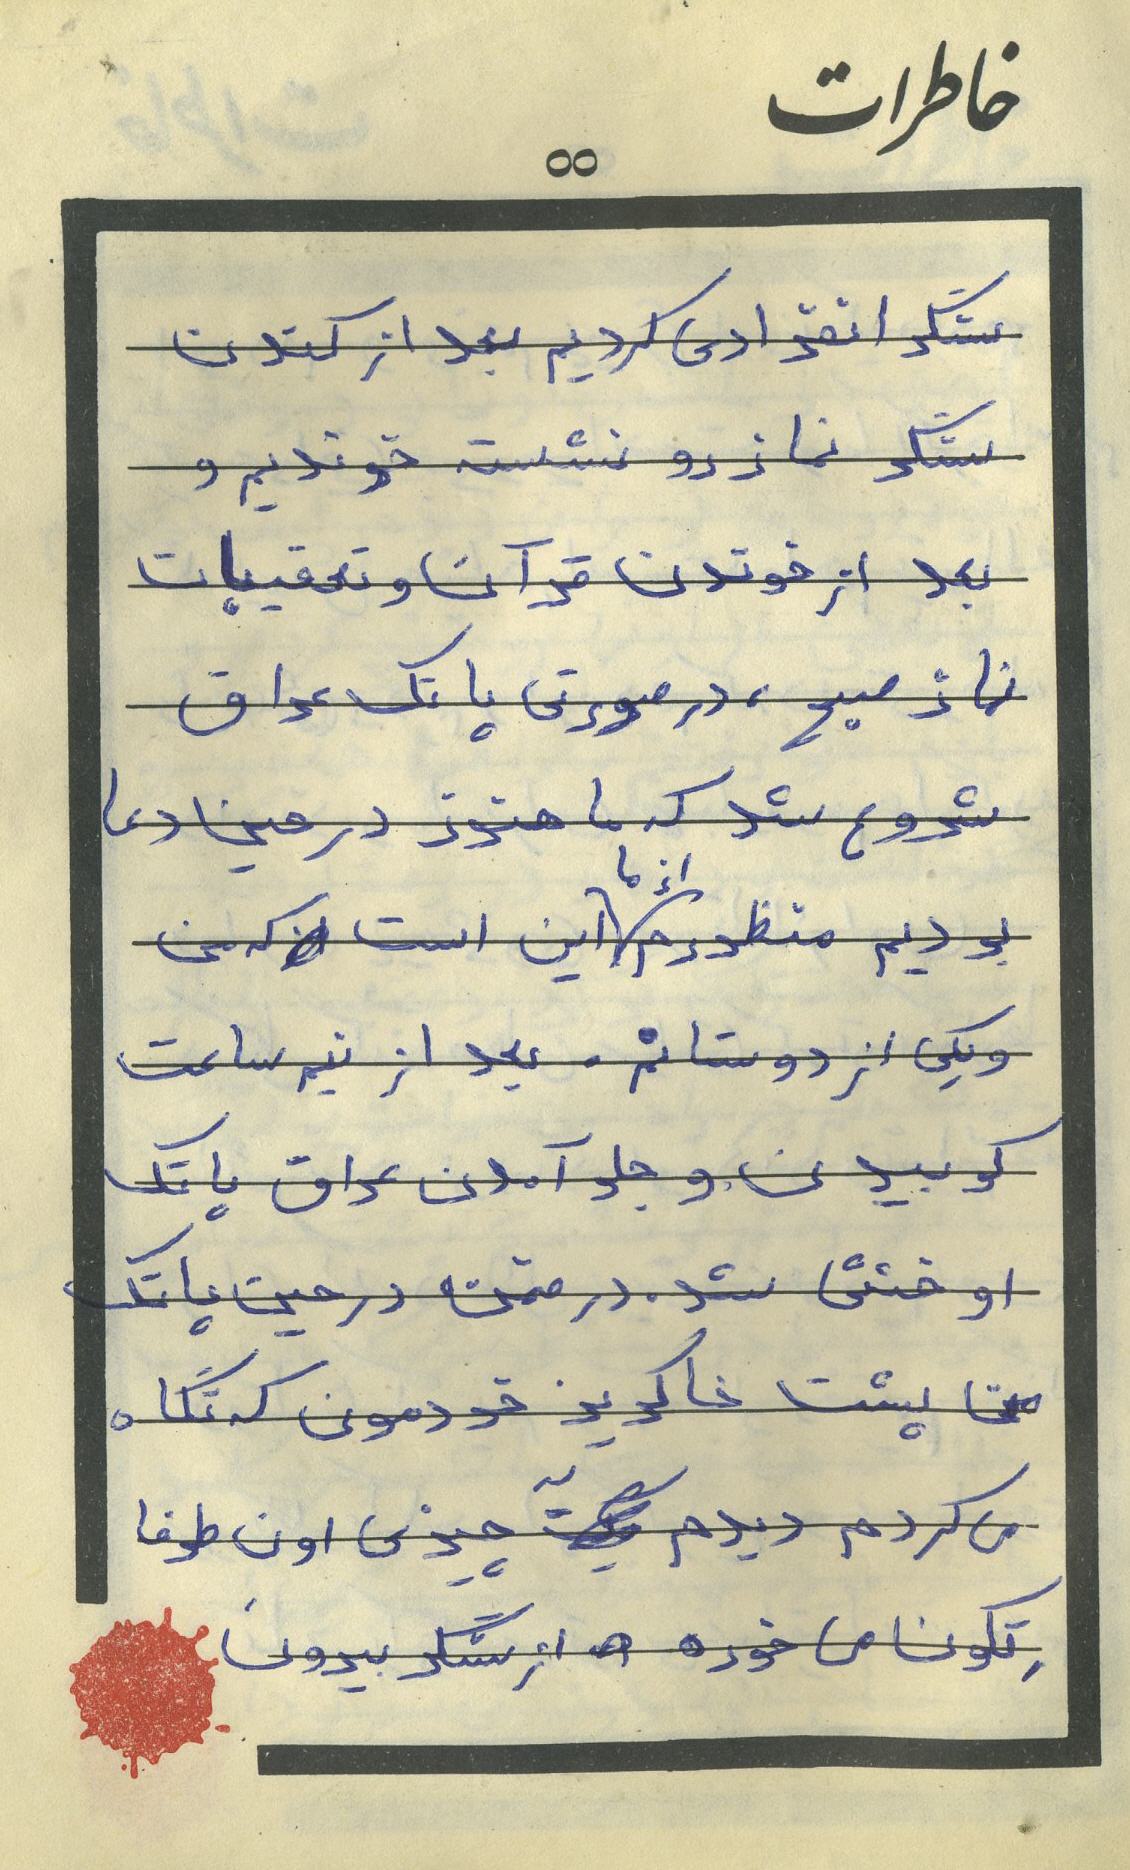 خاطرات
۵۵
سنگر انفرادی کردیم بعد از کندن
سنگر نماز رو نشسته خوندیم و
بعد از خوندن قرآن و تعقیبات
نماز صبح ، درصورتی پاتک عراق
شروع شد که ما هنوز در حین دعا
بودیم منظورم از ما این است که من
ویکی از دوستانم . بعد از نیم ساعت
کوبیدن و جلو آمدن عراق پاتک
او خنثی شد . در ضمن در حین پاتک
من پشت خاکریز خودمون که نگاه
می کردم دیدم یه چیزی اون طرفا
تکون می خوره از سنگر بیرون